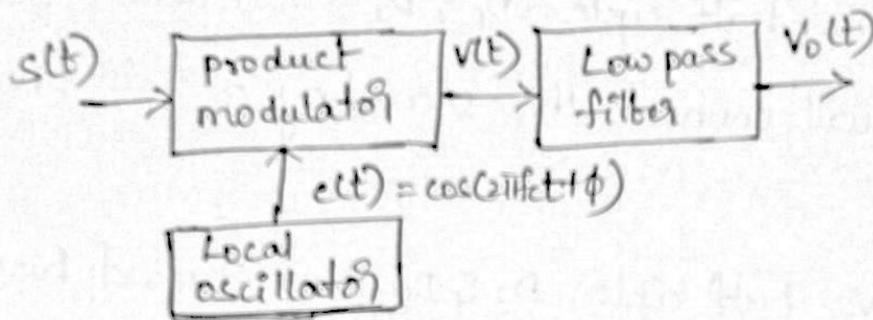 S(t)
product
modulator
V(t)
Low pass
filter
V₀(t)
c(t) = cos(2πfct+ϕ)
Local
oscillator